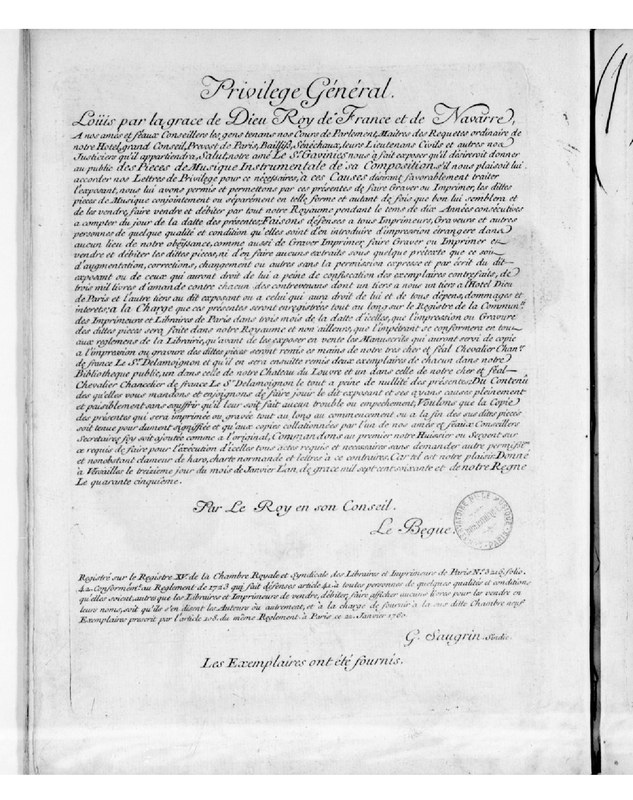 Privilege Général.
Loüis par la grace de Dieu Roy de France et de Navarre,
A nos amés et féaux Conseillers les gens tenans nos Cours de Parlement, Maîtres des Requetes ordinaire de
notre Hotel, grand Conseil, Prevost de Paris, Baillifs, Sénéchaux, leurs Lieutenans Civils et autres nos
Justiciers qu'il appartiendra, Salut, notre amé Le Sr. Gaviniés nous a fait exposer qu'il désireroit donner
au public des Pieces de Musique Instrumentale de sa Composition s'il nous plaisoit lui
accorder nos Lettres de Privilége pour ce nécessaires, à ces Causes désirant favorablement traiter
l'exposant, nous lui avons permis et permettons par ces présentes de faire Graver ou Imprimer, les dittes
pieces de Musique conjointement ou séparément en telle forme et autant de fois que bon lui semblera et
de les vendre, faire vendre et débiter par tout notre Royaume pendant le tems de dix Années consécutives
a compter du jour de la datte des présentes, Faisons défenses a tous Imprimeurs, Graveurs et autres
personnes de quelque qualité et condition qu'elles soient d'en introduire d'impression étrangere dans
aucun lieu de notre obéïssance, comme aussi de Graver Imprimer, faire Graver ou Imprimer
vendre et débiter les dittes pieces, ni d'en faire aucuns extraits sous quelque prétexte que ce soit
d'augmentation, corrections, changement ou autres sans la permission expresse et par écrit du dit
exposant ou de ceux qui auront droit de lui a peine de confiscation des exemplaires contrefaits, de
trois mil livres d'amande contre chacun des contrevenans dont un tiers a nous un tiers a l'Hotel Dieu
de Paris et l'autre tiers au dit exposant ou a celui qui aura droit de lui et de tous dépens, dommages et
interets, a la Charge que ces présentes seront enregistrées tout au long sur le Registre de la Commun.té
des Imprimeurs et Libraires de Paris dans trois mois de la datte d'icelles, que l'impression ou Gravure
des dittes pieces sera faite dans notre Royaume et non ailleurs, que l'impétrant se conformera en tout
aux reglemens de la Librairie, qu'avant de les exposer en vente les Manuscrits qui auront servi de copie
a l'impression ou gravure des dittes pieces seront remis es mains de notre tres cher et féal Chevalier Chan.er
de france Le Sr. Delamoignon et qu'il en sera ensuitte remis deux exemplaires de chacun dans notre
Bibliotheque public, un dans celle de notre Chateau du Louvre et un dans celle de notre cher et féal
Chevalier Chancelier de france Le Sr. Delamoignon le tout a peine de nullité des présentes, Du Contenû
des quelles vous mandons et enjoignons de faire jouir le dit exposant et ses ayans causes pleinement
et paisiblement sans souffrir qu'il leur soit fait aucun trouble ou empechement, Voulons que la Copie
des présentes qui sera imprimée ou gravée tout au long au commencement ou a la fin des sus dittes pieces
soit tenue pour dument signiffiée et qu'aux copies collationnées par l'un de nos amés et féaux Conseillers
Secretaires foy soit ajoutée comme a l'original, Commandons au premier notre Huissier ou Sergent sur
ce requis de faire pour l'exécution d'icelles tous actes requis et necessaires sans demander autre permis.on
et nonobstant clameur de haro, charte normande et lettres a ce contraires, Car tel est notre plaisir Donné
a Versailles le treizieme jour du mois de Janvier L'an de grace mil sept cent soixante et de notre Regne
Le quarante cinquiéme.
Par Le Roy en son Conseil.
Le Begue
Registré sur le Registre XV. de la Chambre Royale et Syndicale des Libraires et Imprimeurs de Paris No. 3216 folio.
42. Conformém.t au Reglement de 1723 qui fait défenses article 41. à toutes personnes de quelques qualités et conditions
qu'elles soient, autres que les Libraires et Imprimeurs de vendre, débiter, faire afficher aucuns livres pour les vendre en
leurs noms, soit qu'ils s'en disent les Auteurs ou autrement, et à la charge de fournir à la sus ditte Chambre neuf
Exemplaires prescrit par l'article 108. du même Reglement. à Paris ce 22. Janvier 1760.
G. Saugrin. Sindic.
Les Exemplaires ont été fournis.